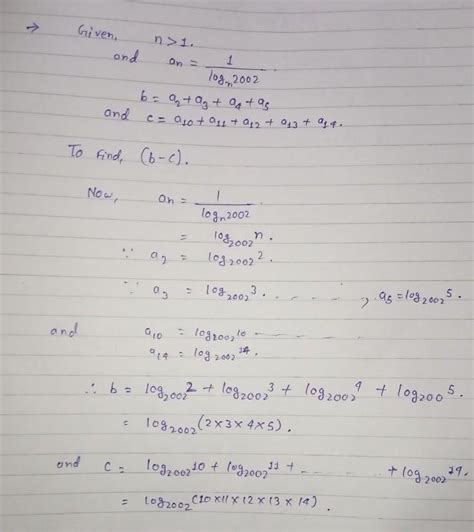 → Given, n>1.
and an = 1/logₙ2002
b = a₂+a₃ + a₄ + a₅
and c = a₁₀ + a₁₁ + a₁₂ + a₁₃ + a₁₄.
To Find, (b-c).
Now, an = 1/logₙ2002
= log₂₀₀₂ n.
∵ a₂ = log₂₀₀₂ 2.
∵ a₃ = log₂₀₀₂ 3. - - - - - , a₅ = log₂₀₀₂ 5.
and a₁₀ = log₂₀₀₂ 10 - - - - -
a₁₄ = log₂₀₀₂ 14.
∴ b = log₂₀₀₂ 2 + log₂₀₀₂ 3 + log₂₀₀₂ 4 + log₂₀₀ 5.
= log₂₀₀₂ (2×3×4×5).
and c = log₂₀₀₂ 10 + log₂₀₀₂ 11 + - - - - - + log₂₀₀₂ 14.
= log₂₀₀₂ (10×11×12×13×14).